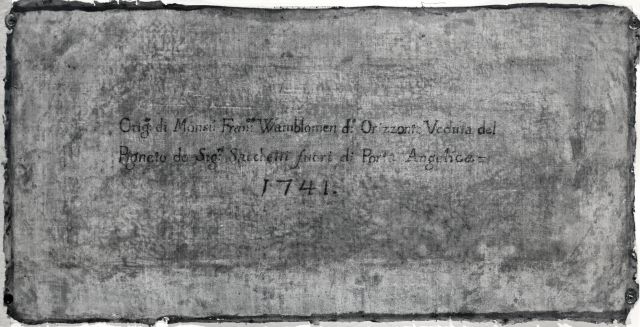 Orig.e di Monsù Fran.co Wamblomen d.o Orizzonte Veduta del
Pigneto de Sig.ri Sacchetti fuori di Porta Angelica=
1741.